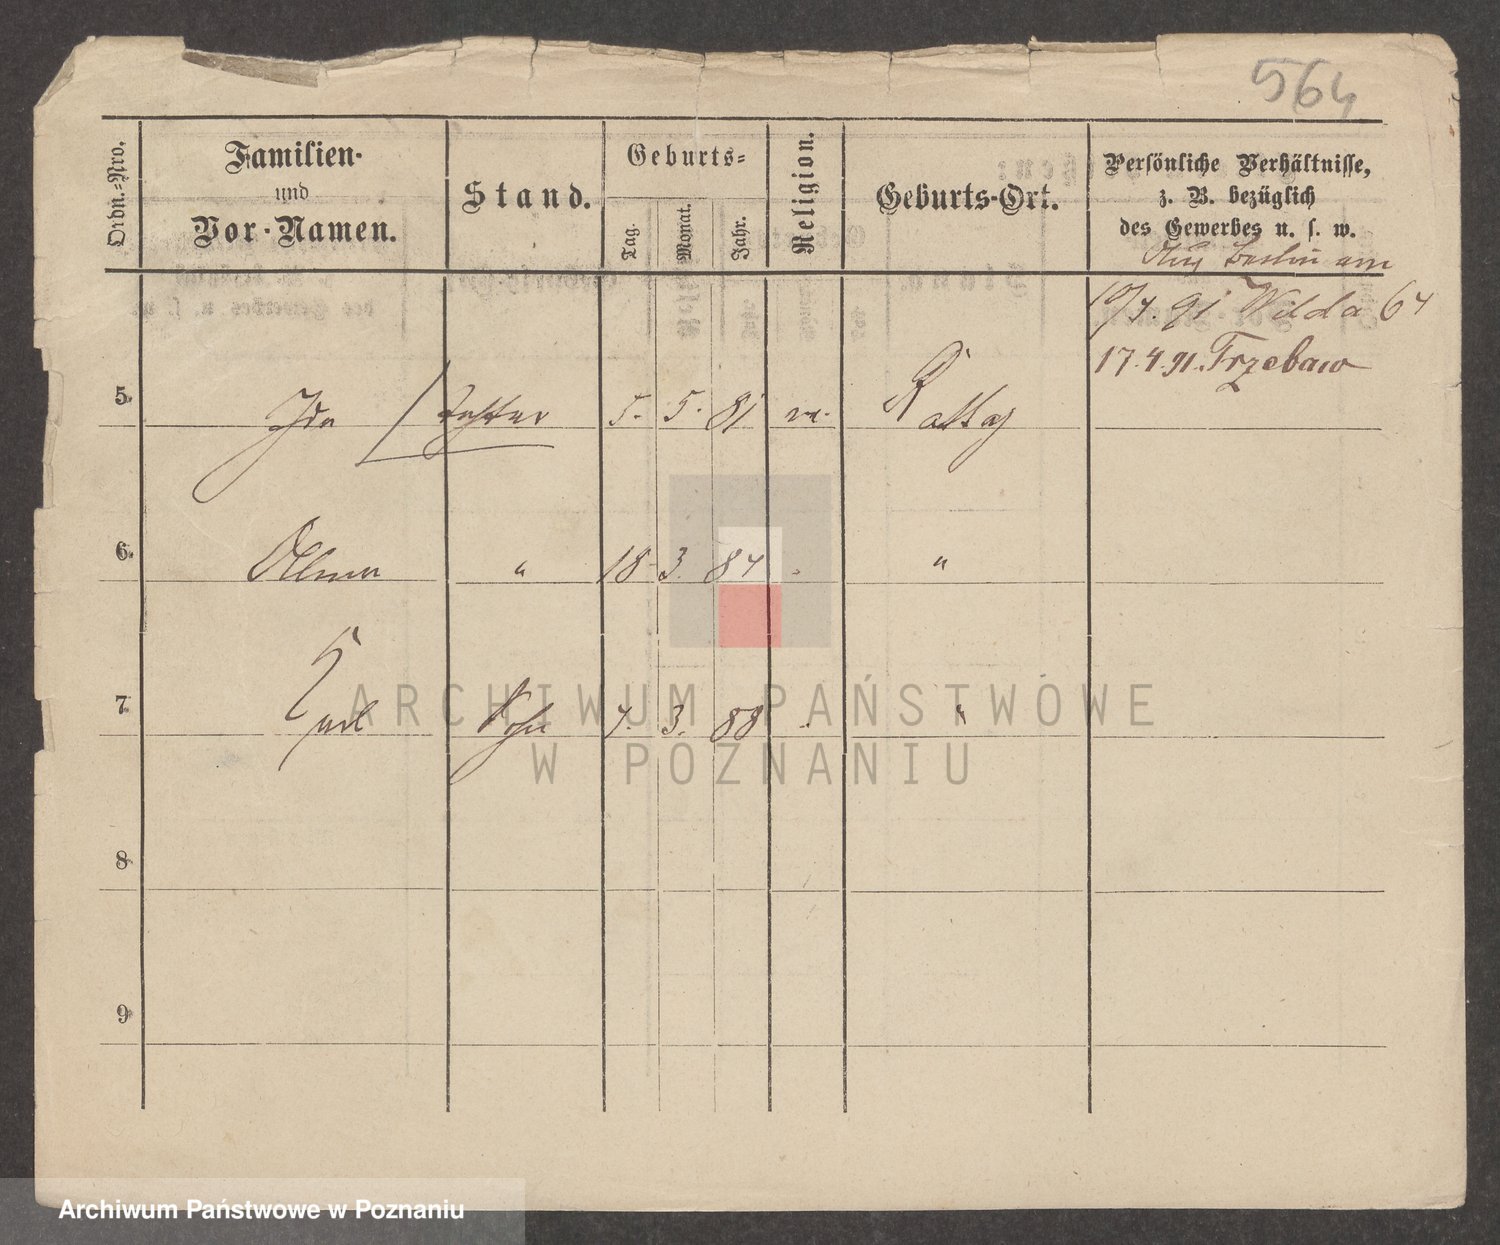 564
Ordn.-Nro.
Familien-
und
Vor-Namen.
Stand.
Geburts-
Tag.
Monat.
Jahr.
Religion.
Geburts-Ort.
Persönliche Verhältnisse,
z. B. bezüglich
des Gewerbes u. s. w.
Berlin am
10/4.91 Wilda 64
17.4.91. Trzebaw
5. Ida Tochter 5. 5. 81
6. " 18 3. 84 "
7. Karl Sohn 7. 3. 88 "
8.
9.
ARCHIWUM PAŃSTWOWE
W POZNANIU
Archiwum Państwowe w Poznaniu